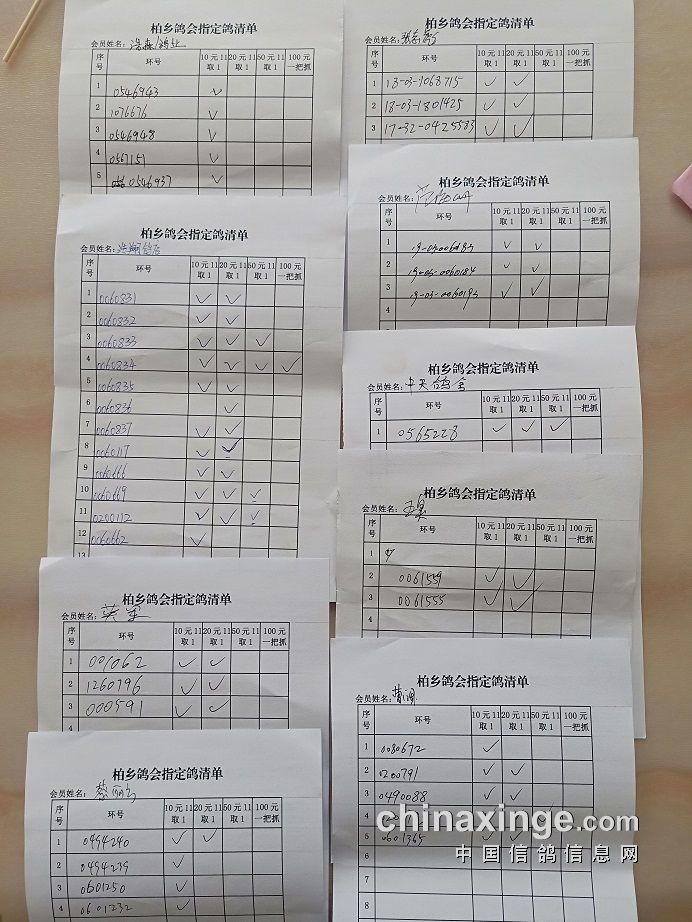 柏乡鸽会指定鸽清单
会员姓名：浩森鸽业
序号 环号 10元11取1 20元11取1 50元11取1 100元一把抓
1 0546943 ✓
2 1076676 ✓
3 0546948 ✓
4 0567151 ✓
5 0546937 ✓
柏乡鸽会指定鸽清单
会员姓名：浩翔鸽店
序号 环号 10元11取1 20元11取1 50元11取1 100元一把抓
1 0060831 ✓ ✓
2 0060832 ✓ ✓
3 0060833 ✓ ✓ ✓
4 0060834 ✓ ✓ ✓ ✓
5 0060835 ✓ ✓
6 0060836 ✓
7 0060837 ✓ ✓
8 0060117 ✓ ✓
9 0060666 ✓ ✓
10 0060669 ✓ ✓ ✓
11 0200112 ✓ ✓ ✓
12 0060662 ✓
13
柏乡鸽会指定鸽清单
会员姓名：
序号 环号 10元11取1 20元11取1 50元11取1 100元一把抓
1 001062 ✓ ✓
2 1260796 ✓ ✓
3 000591 ✓ ✓
4
柏乡鸽会指定鸽清单
会员姓名：
序号 环号 10元11取1 20元11取1 50元11取1 100元一把抓
1 0494240 ✓ ✓
2 0494239 ✓
3 0601250 ✓
4 0601232 ✓
柏乡鸽会指定鸽清单
会员姓名：
序号 环号 10元11取1 20元11取1 50元11取1 100元一把抓
1 18-03-1068715 ✓ ✓
2 18-03-1801425 ✓ ✓
3 17-32-0425583 ✓ ✓
柏乡鸽会指定鸽清单
会员姓名：
序号 环号 10元11取1 20元11取1 50元11取1 100元一把抓
1 ✓ ✓
2 19-03-0060184 ✓ ✓
3 19-03-0060193 ✓ ✓
4
柏乡鸽会指定鸽清单
会员姓名：中天鸽舍
序号 环号 10元11取1 20元11取1 50元11取1 100元一把抓
1 0565228 ✓ ✓ ✓
柏乡鸽会指定鸽清单
会员姓名：
序号 环号 10元11取1 20元11取1 50元11取1 100元一把抓
1
2 0061559 ✓ ✓
3 0061555 ✓ ✓
柏乡鸽会指定鸽清单
会员姓名：
序号 环号 10元11取1 20元11取1 50元11取1 100元一把抓
1 0080672 ✓
2 0200791 ✓ ✓
3 0490088 ✓ ✓
5 0601365 ✓ ✓
6
7
8
chinaxinge.com
中国信鸽信息网